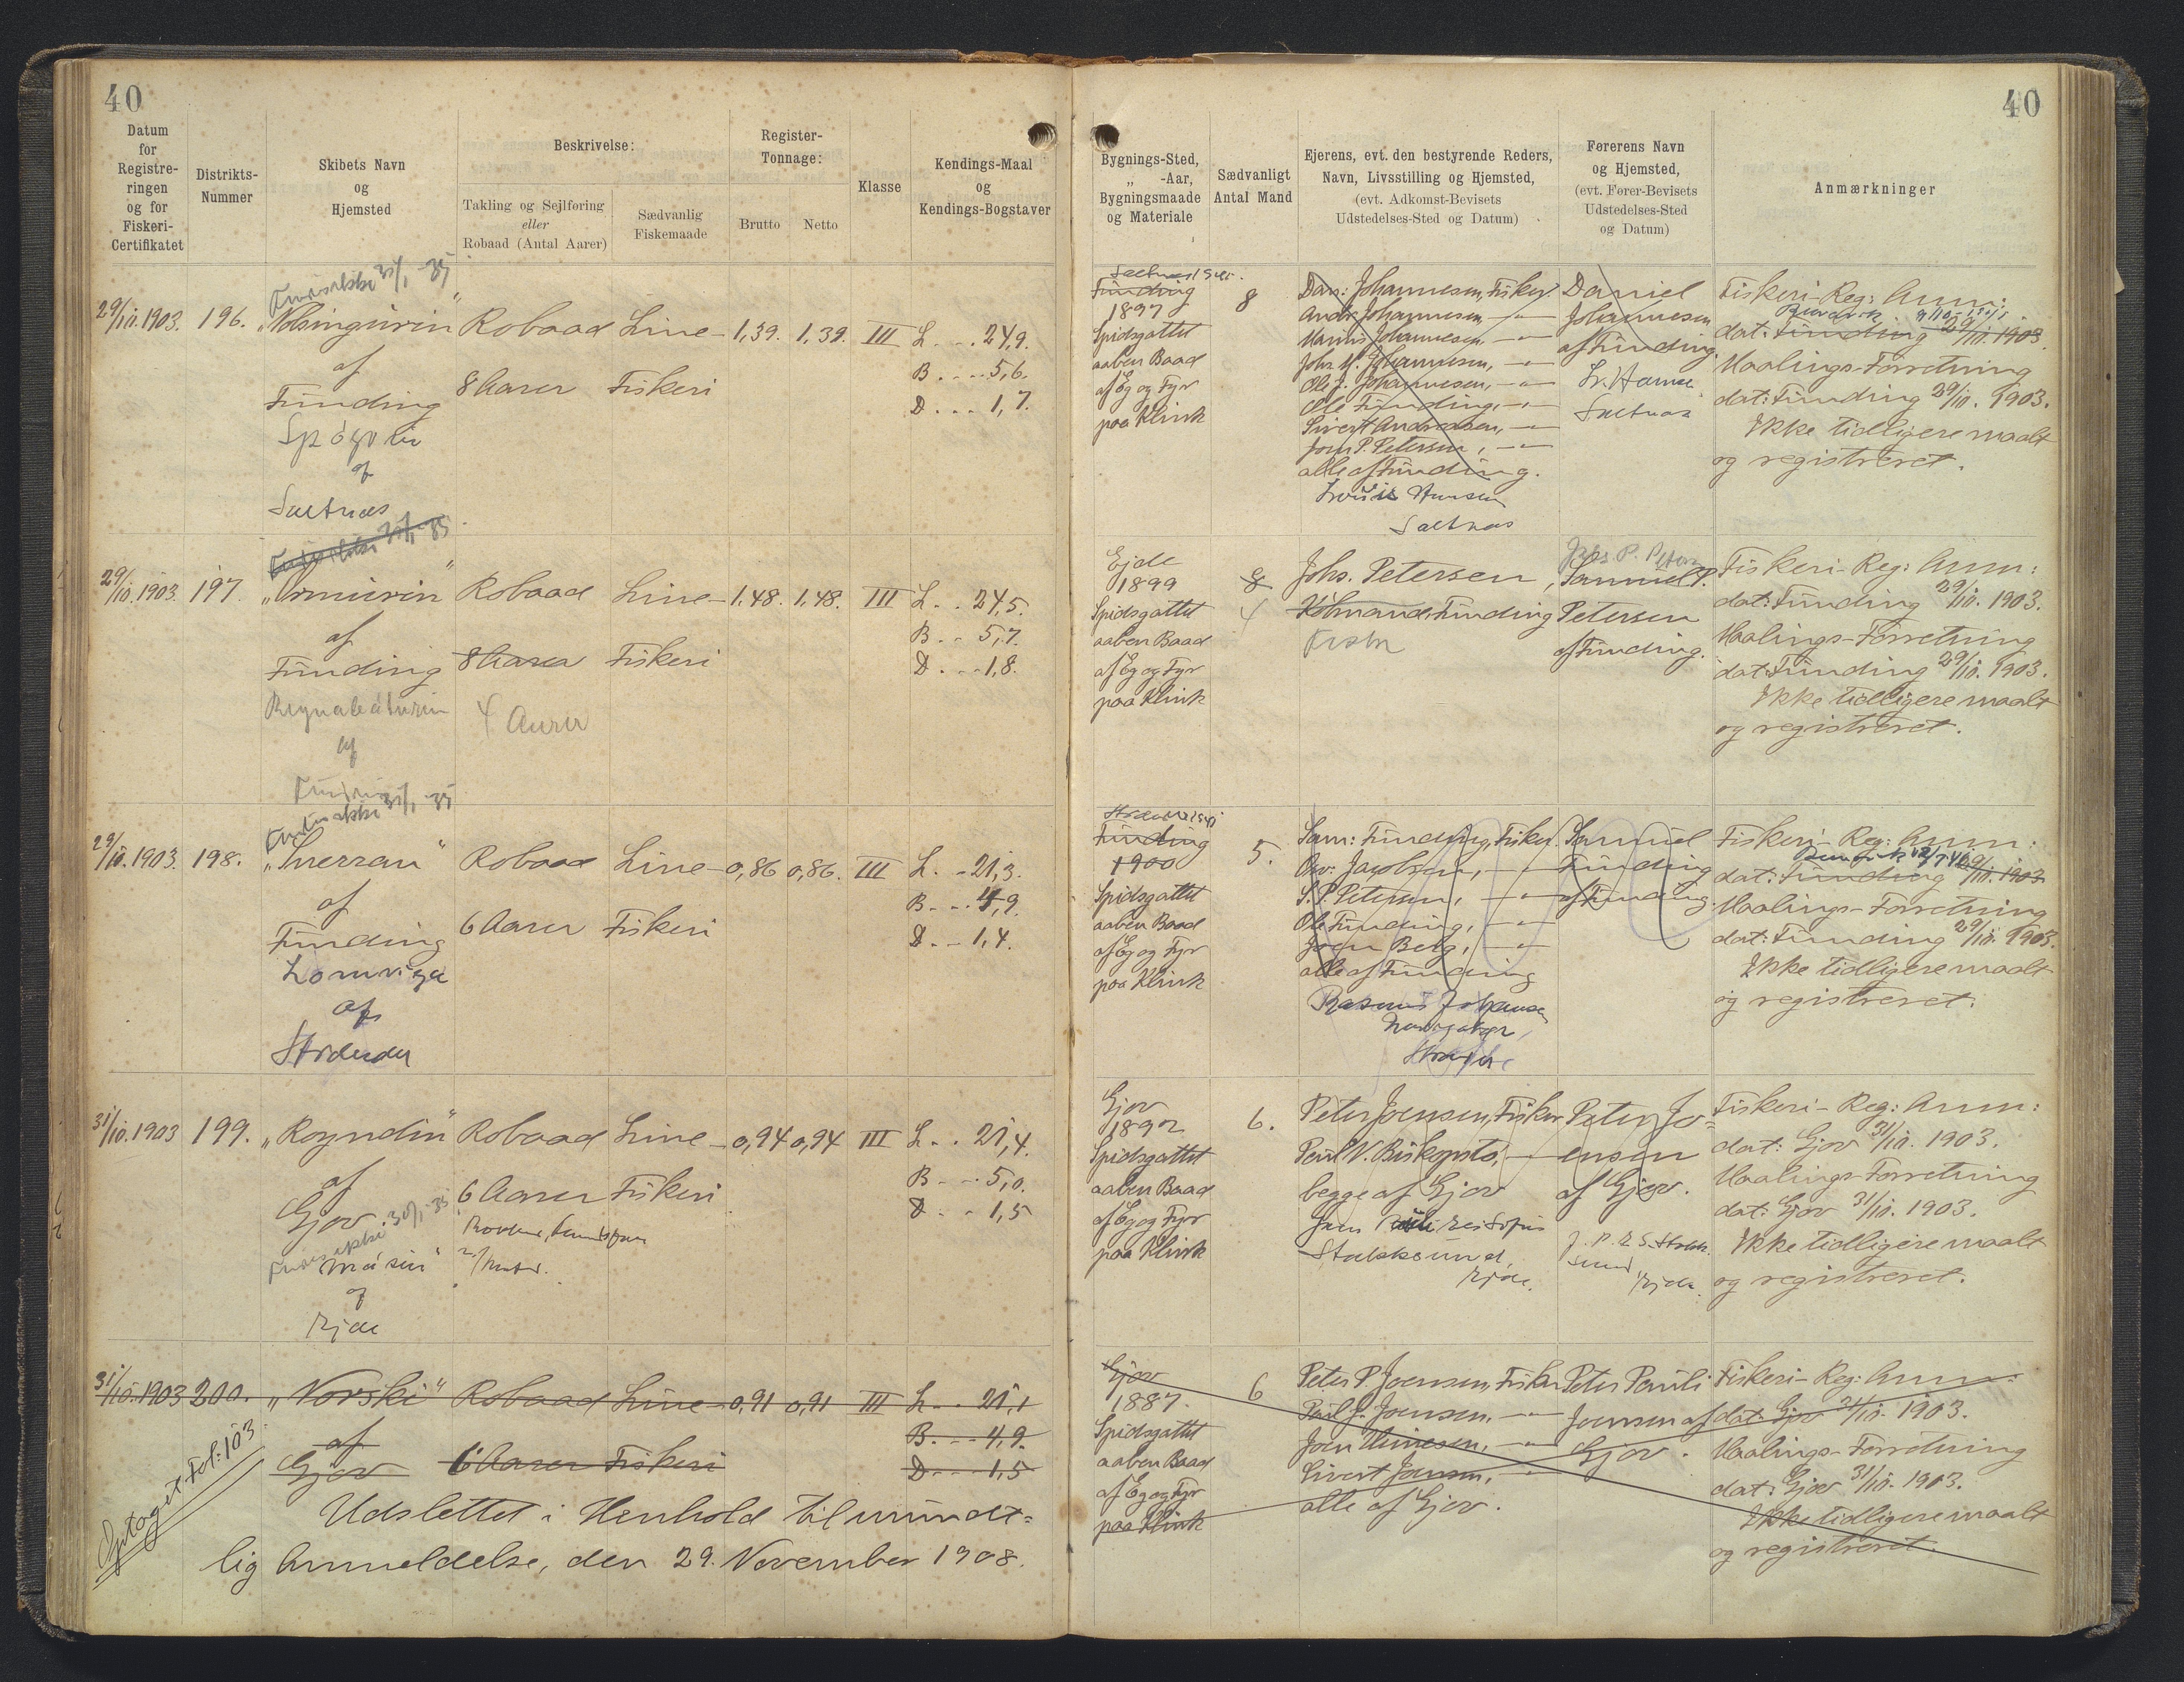 40
Datum
for
Registre-
ringen
og for
Fiskeri-
Certifikatet
Distrikts-
Nummer
Skibets Navn
og
Hjemsted
Beskrivelse:
Takling og Sejlføring
eller
Robaad (Antal Aarer)
Sædvanlig
Fiskemaade
Register-
Tonnage:
Brutto Netto
Klasse
Kendings-Maal
og
Kendings-Bogstaver
29/10.1903. 196. Robaad Line- 1,39. 1,39. III L. . . 24,9.
af B. . . . 5,6.
Funding 8 Aarer Fiskeri D. . . 1,7.
af
Saltnæs
29/10.1903. 197. Robaad Line- 1,48. 1,48. III L. . 24,5.
af B. . 5,7.
Funding 8 Aarer Fiskeri D. . . 1,8.
4 Aarer
af
29/10.1903. 198. "Sverran" Robaad Line- 0,86 0,86. III L. . 21,3.
af B. . . 4,9.
Funding 6 Aarer Fiskeri D. . 1,4.
Lomviga
af
31/10.1903 199. "Royndin" Robaad Line- 0,94 0,94 III L. . 21,4.
af B. . . 5,0.
Gjov. 6 Aarer Fiskeri D. . 1,5
"Másin"
af
Ejde
31/10.1903 200. "Norski" Robaad Line- 0,91 0,91 III L. . . 21,1
af B. . . 4,9.
Gjov 6 Aarer Fiskeri D. . . 1,5
Udslettet i Henhold til mundt=
lig Anmeldelse, den 29. November 1908.
Fol: 103.
40
Bygnings-Sted,
„ -Aar,
Bygningsmaade
og Materiale
Sædvanligt
Antal Mand
Ejerens, evt. den bestyrende Reders,
Navn, Livsstilling og Hjemsted,
(evt. Adkomst-Bevisets
Udstedelses-Sted og Datum)
Førerens Navn
og Hjemsted,
(evt. Fører-Bevisets
Udstedelses-Sted
og Datum)
Anmærkninger
Funding
1897
Spidsgattet
aaben Baad
af Eg og Fyr
paa Klink
8
Dan: Johannesen, Fisker.
Andr. Johannesen, —"—
Johannesen, —"—
Johs M. Johannesen, —"—
Ole J. Johannesen, —"—
Ole Funding, —"—
Sivert Andreasen, —"—
Joen P. Petersen, —"—
alle af Funding.
Hansen
Saltnæs
Daniel
Johannesen
af Funding.
Saltnæs
Fiskeri-Reg: Anm:
dat: Funding 29/10. 1903.
Maalings-Forretning
dat: Funding 29/10. 1903.
Ikke tidligere maalt
og registreret.
Ejde
1899
Spidsgattet
aaben Baad
af Eg og Fyr
paa Klink
8
4
Johs. Petersen,
Købmand, Funding
Johs. P. Petersen
Samuel P.
Petersen
af Funding.
Fiskeri-Reg: Anm:
dat: Funding 29/10. 1903.
Maalings-Forretning
dat: Funding 29/10. 1903.
Ikke tidligere maalt
og registreret.
Funding
1900
Spidsgattet
aaben Baad
af Eg og Fyr
paa Klink
5.
Sam: Funding, Fisker.
Jacobsen, —"—
S. P. Petersen, —"—
Ole Funding, —"—
Joen Berg, —"—
alle af Funding
Samuel
Funding
af Funding.
Fiskeri-Reg: Anm:
dat: Funding 29/10. 1903
Maalings-Forretning
dat: Funding 29/10. 1903.
Ikke tidligere maalt
og registreret.
Gjov
1892
Spidsgattet
aaben Baad
af Eg og Fyr
paa Klink
6.
Peter Joensen, Fisker
Poul N. Biskopstø, —"—
begge af Gjov
Stakksund,
Ejde.
Peter Jo=
ensen
af Gjov.
Ejde.
Fiskeri-Reg: Anm:
dat: Gjov 31/10. 1903.
Maalings-Forretning
dat: Gjov 31/10. 1903.
Ikke tidligere maalt
og registreret.
Gjov
1887.
Spidsgattet
aaben Baad
af Eg og Fyr
paa Klink
6
Peter P. Joensen, Fisker
Poul J. Joensen, —"—
Joen —"—
Sivert Joensen, —"—
alle af Gjov.
Peter Pauli
Joensen af
Gjov.
Fiskeri-Reg: Anm:
dat: Gjov 31/10. 1903.
Maalings-Forretning
dat: Gjov 31/10. 1903.
Ikke tidligere maalt
og registreret.